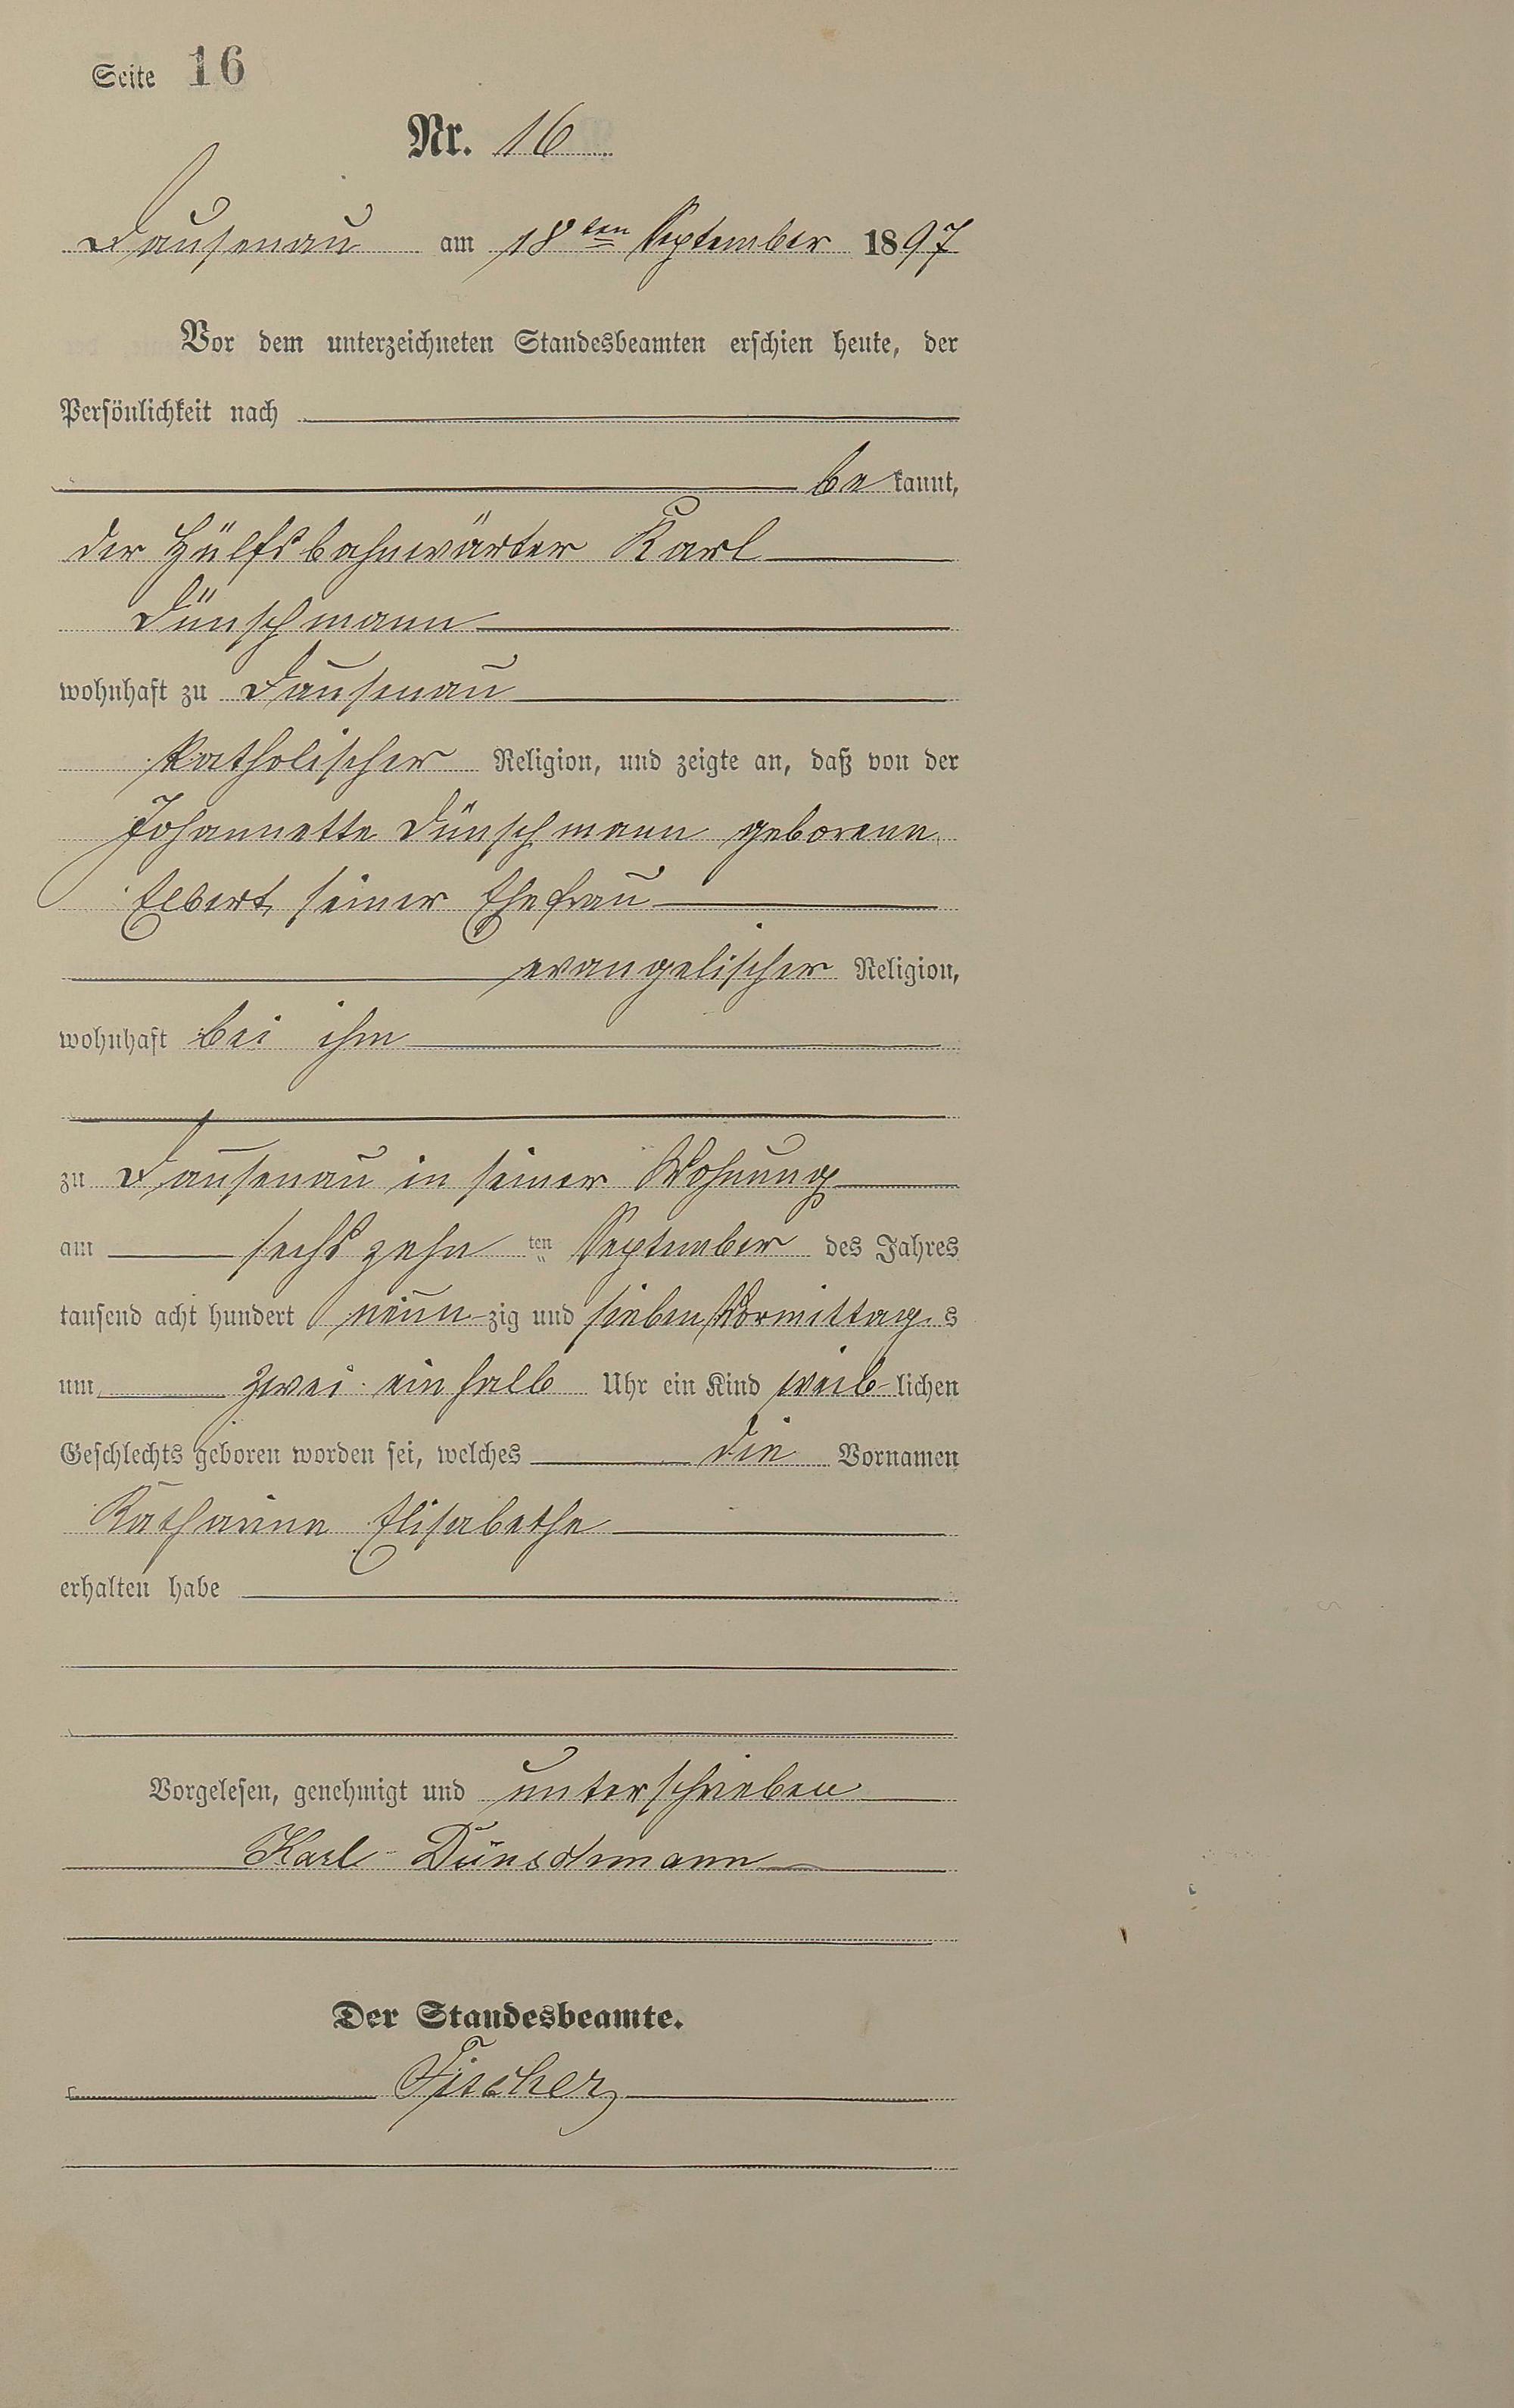 Seite 16
Nr. 16
Dausenau am 18ten September 1897
Vor dem unterzeichneten Standesbeamten erschien heute, der
Persönlichkeit nach
bekannt,
der Hülfsbahnwärter Karl
Dünschmann
wohnhaft zu Dausenau
katholischer Religion, und zeigte an, daß von der
Johannette Dünschmann geborene
Elbert, seiner Ehefrau
evangelischer Religion,
wohnhaft bei ihm
zu Dausenau in seiner Wohnung
am sechszehn ten September des Jahres
tausend acht hundert neunzig und sieben Vormittags
um zwei einhalb Uhr ein Kind weiblichen
Geschlechts geboren worden sei, welches die Vornamen
Katharina Elisabethe
erhalten habe
Vorgelesen, genehmigt und unterschrieben
Karl Dünschmann
Der Standesbeamte.
Fischer